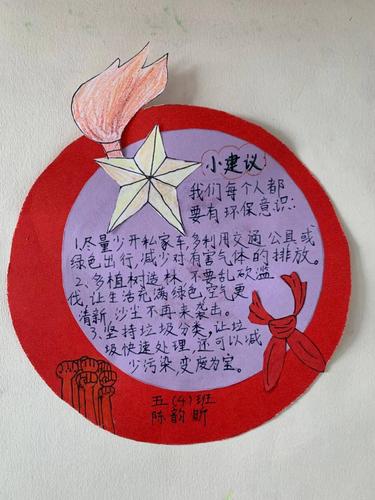 小建议
我们每个人都
要有环保意识:
1.尽量少开私家车,多利用交通公具或
绿色出行,减少对有害气体的排放。
2、多植树造林,不要乱砍滥
伐,让生活充满绿色,空气更
清新,沙尘不再来袭击。
3、坚持垃圾分类,让垃
圾快速处理,还可以减
少污染,变废为宝。
五(4)班
陈韵昕